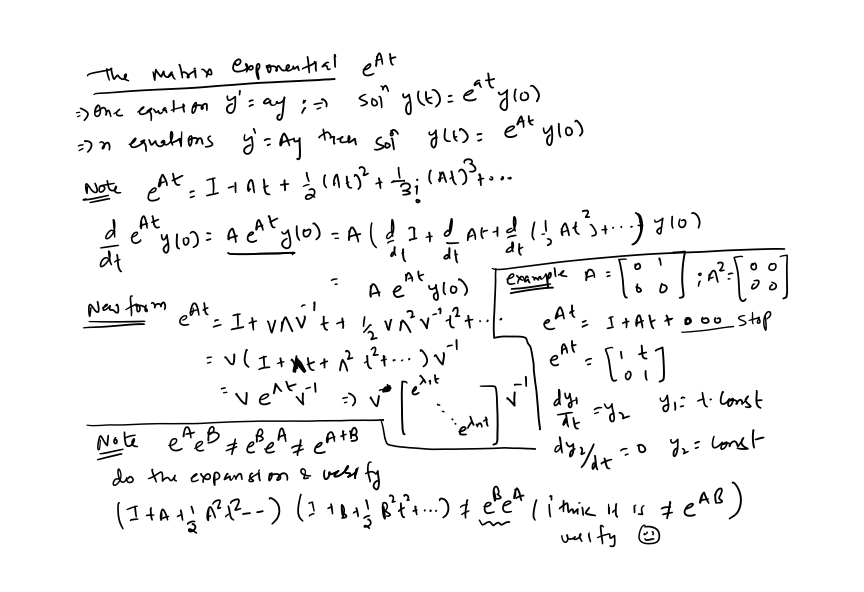 The matrix exponential e^{At}
⇒ One equation y' = ay ; ⇒ solⁿ y(t) = e^{at} y(0)
⇒ n equations y' = Ay then solⁿ y(t) = e^{At} y(0)
Note e^{At} = I + At + 1/2 (At)² + 1/3! (At)³ + ...
d/dt e^{At} y(0) = A e^{At} y(0) = A ( d/dt I + d/dt At + d/dt (1/2 At²) + ... ) y(0)
= A e^{At} y(0)
New form e^{At} = I + VΛV⁻¹t + 1/2 VΛ²V⁻¹t² + ...
= V ( I + Λt + Λ² t² + ... ) V⁻¹
= V e^{Λt} V⁻¹ ⇒ V [ e^{λ₁t} ⋱ e^{λₙt} ] V⁻¹
example A = [ 0 1 ; 0 0 ] ; A² = [ 0 0 ; 0 0 ]
e^{At} = I + At + 000 stop
e^{At} = [ 1 t ; 0 1 ]
dy₁/dt = y₂ y₁ = t. const
dy₂/dt = 0 y₂ = const
Note e^A e^B ≠ e^B e^A ≠ e^{A+B}
do the expansion & verify
( I + A + 1/2 A²t² -- ) ( I + B + 1/2 B²t² + ... ) ≠ e^B e^A ( i think it is ≠ e^{AB} )
verify ☺